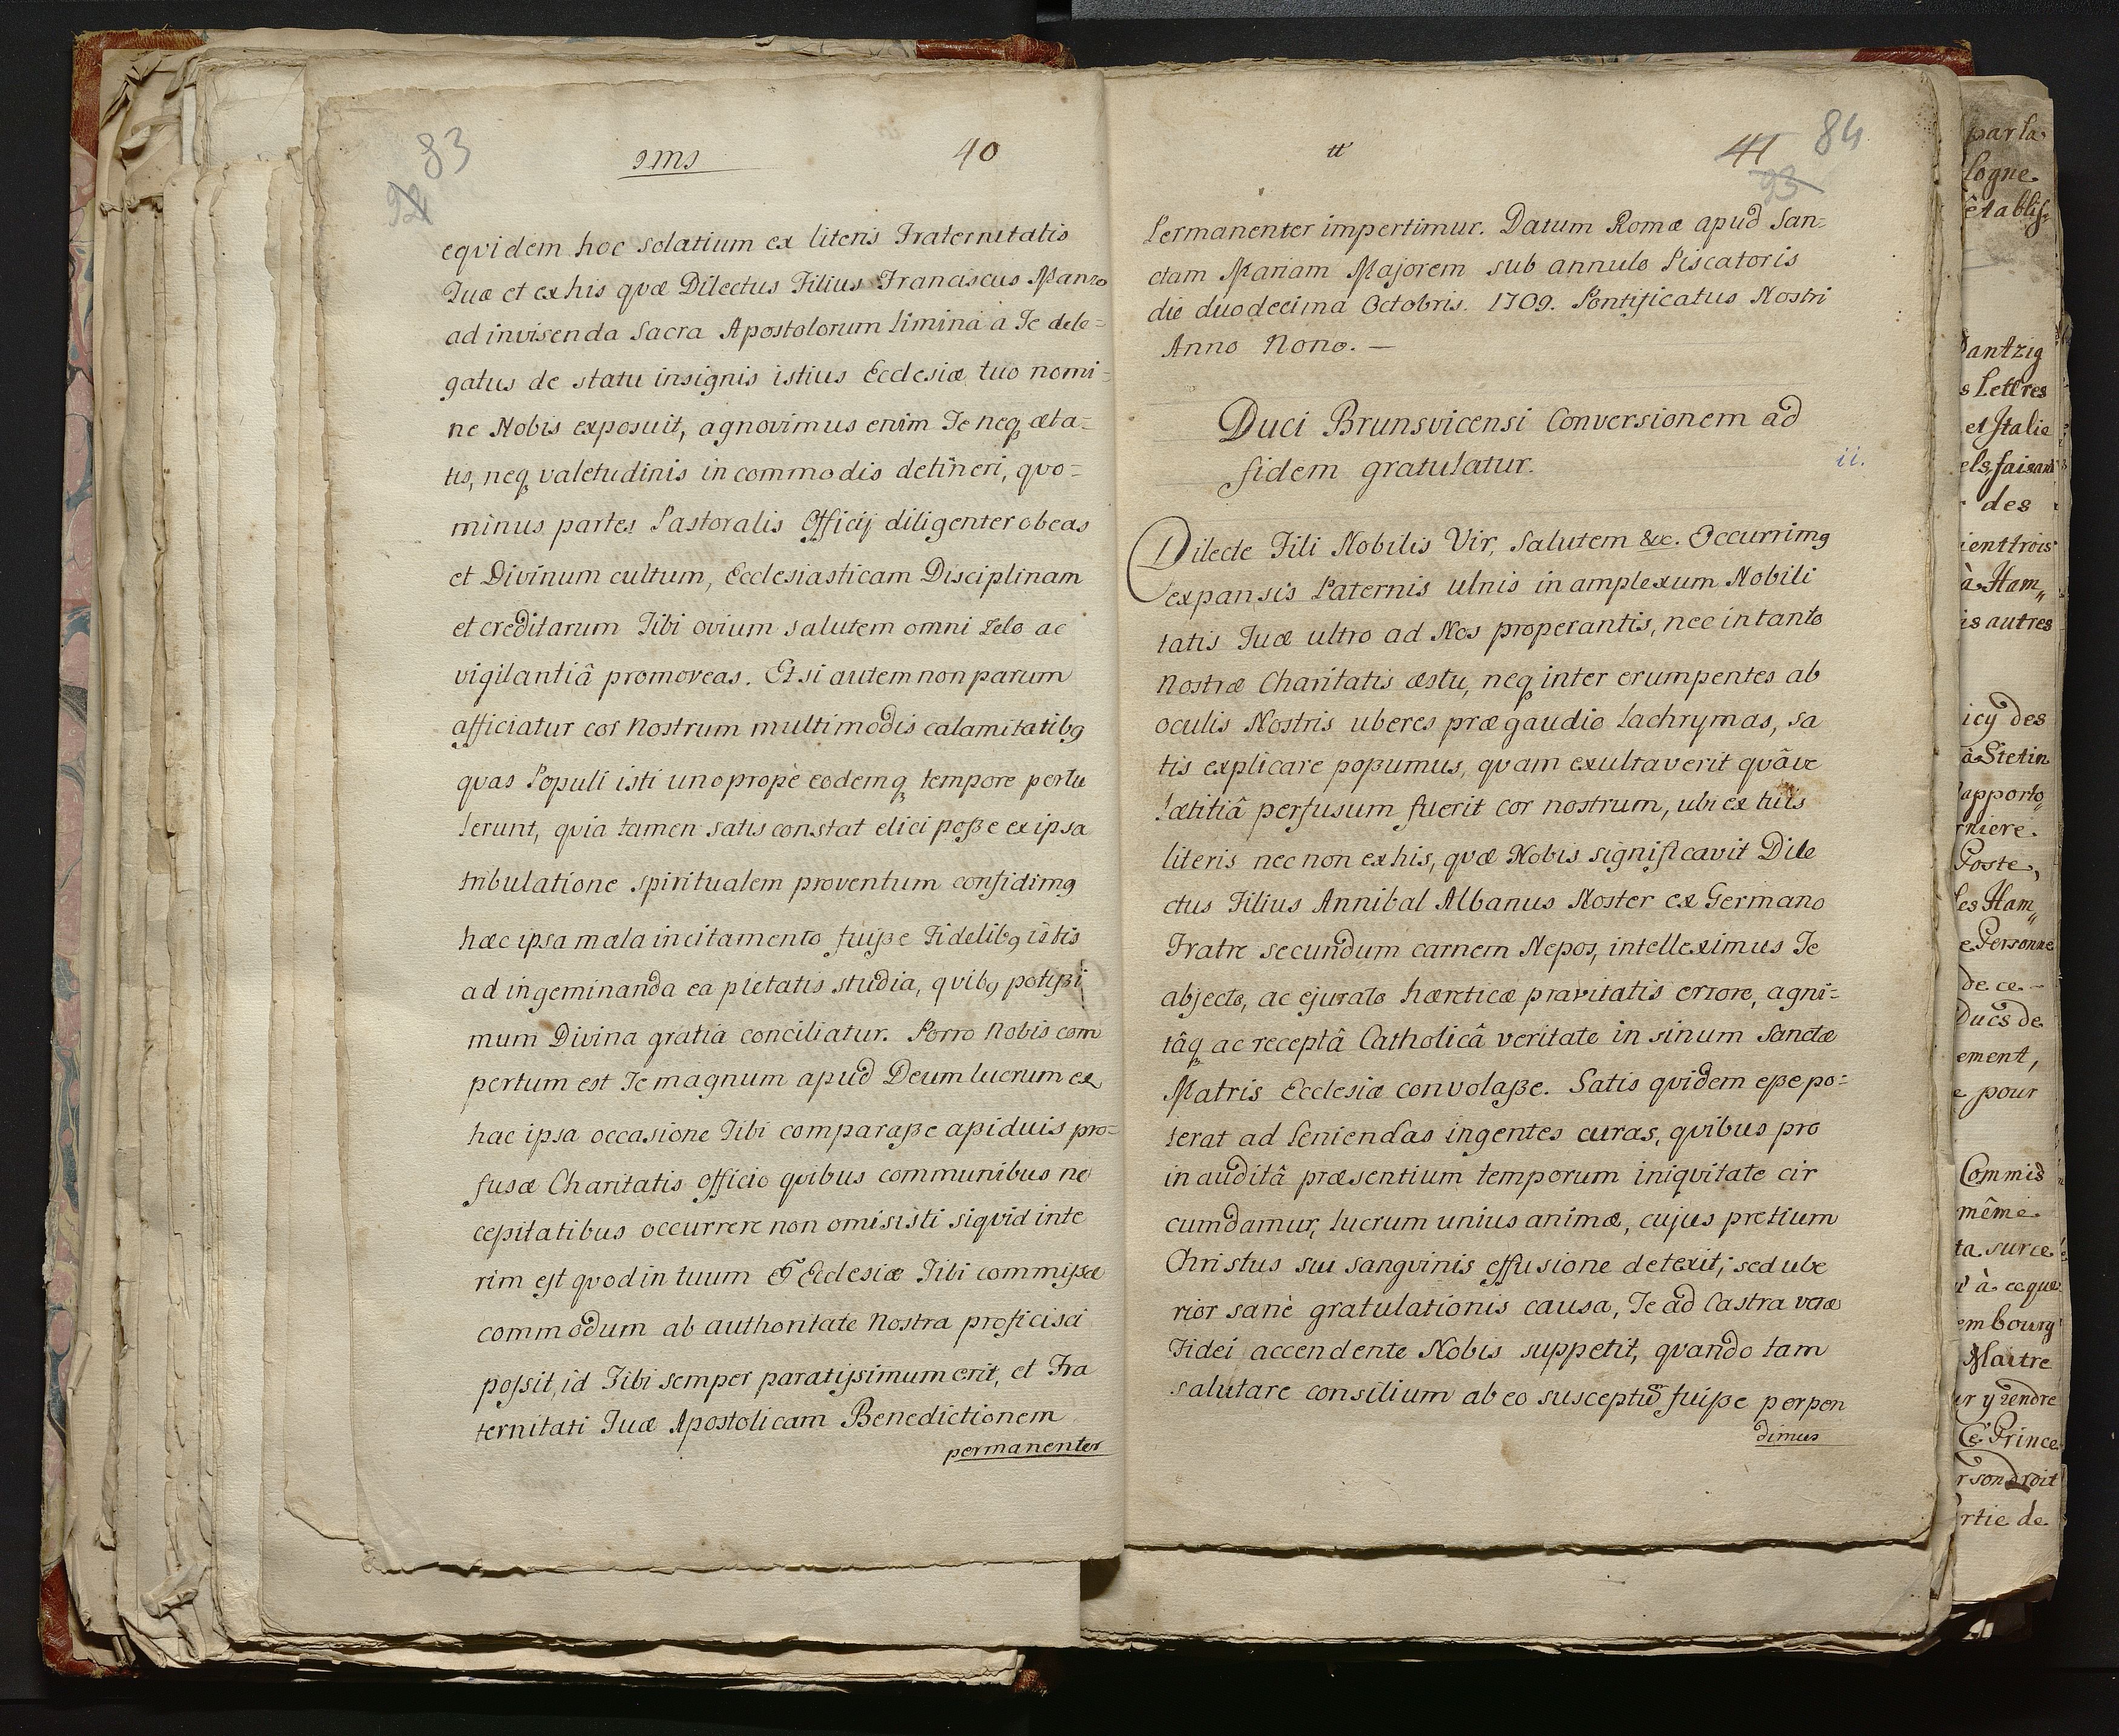 83
9ms
40
92
eqvidem hoc solatium ex literis Fraternitatis
Tuæ et ex his qvæ Dilectus Filius Franciscus Manzo
ad invisenda Sacra Apostolorum limina a Te dele=
gatus de statu insignis istius Ecclesiæ tuo nomi=
ne Nobis exposuit, agnovimus enim Te neq æta=
tis, neq valetudinis incommodis detineri, qvo=
minus partes Pastoralis Officij diligenter obeas
et Divinum cultum, Ecclesiasticam Disciplinam
et creditarum Tibi ovium salutem omni zelo ac
vigilantiâ promoveas. Etsi autem non parum
afficiatur cor Nostrum multimodis calamitatibg
qvas Populi isti uno propè eodemq tempore pertu
lerunt, qvia tamen satis constat elici poße ex ipsa
tribulatione spiritualem proventum confidimg
hæc ipsa mala incitamento fuiße Fidelibg istis
ad ingeminanda ea pietatis studia, qvibg potißi
mum Divina gratia conciliatur. Porro Nobis com
pertum est Te magnum apud Deum lucrum ex
hac ipsa occasione Tibi comparaße aßiduis pro=
fusæ Charitatis officio qvibus communibus ne
ceßitatibus occurrere non omisisti siqvid inte
rim est qvod in tuum & Ecclesiæ Tibi commißæ
commodum ab authoritate Nostra proficisci
poßsit, id Tibi semper paratißsimum erit, et Fra
ternitati Tuæ Apostolicam Benedictionem
permanenter
tt
41
84
93
Permanenter impertimur. Datum Romæ apud San=
ctam Mariam Majorem sub annulo Piscatoris
die duodecima Octobris. 1709. Pontificatus Nostri
Anno Nono. —
Duci Brunsvicensi Conversionem ad
fidem gratulatur.
ii.
Dilecte Fili Nobilis Vir, Salutem &c. Occurrimg
expansis Paternis ulnis in amplexum Nobili
tatis Tuæ ultro ad Nos properantis, nec in tanto
Nostræ Charitatis æstu, neq inter erumpentes ab
oculis Nostris uberes præ gaudio lachrymas, sa
tis explicare poßumus, qvam exultaverit qvâve
lætitiâ perfusum fuerit cor nostrum, ubi ex tuis
literis nec non ex his, qvæ Nobis significavit Dile
ctus Filius Annibal Albanus Noster ex Germano
Fratre secundum carnem Nepos, intelleximus Te
abjecto, ac ejurato hæreticæ pravitatis errore, agni=
tâq ac receptâ Catholicâ veritate in sinum Sanctæ
Matris Ecclesiæ convolaße. Satis qvidem eße po=
terat ad leniendas ingentes curas, qvibus pro
inauditâ præsentium temporum iniqvitate cir
cumdamur, lucrum unius animæ, cujus pretium
Christus sui sangvinis effusione detexit; sed ube
rior sanè gratulationis causa, Te ad Castra veræ
Fidei accendente Nobis suppetit, qvando tam
salutare consilium ab eo susceptū fuiße perpen
dimus
par la
logne
établiss
Dantzig
s Lettres
et Italie
els, faisant
des
ient trois
à Ham„
is autres
icy des
à Stetin
rapporto„
rniere
Poste,
les Ham„
e Personne
de ce
Ducs de
ement,
e pour
Commis
même
ta surce
à ce que
embourg
Maitre
ur y rendre
Ce Prince
r son droit
rtie de